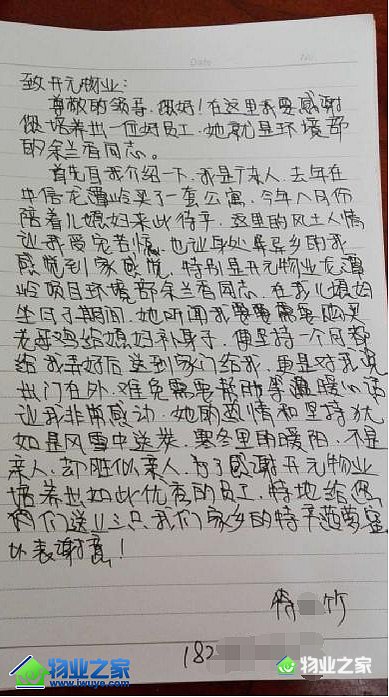 致开元物业：
尊敬的领导，您好！在这里我要感谢
您培养出一位好员工，她就是环境部
的余兰香同志。
首先自我介绍一下，我是广东人，去年在
中信龙潭岭买了一套公寓，今年八月份
陪着儿媳妇来此待产，这里的风土人情
让我受宠若惊，也让身处异乡的我
感觉到家感觉，特别是开元物业龙潭
岭项目环境部余兰香同志，在我儿媳妇
坐月子期间，她听闻我要需要购买
老母鸡给媳妇补身子，便坚持一个月都
给我弄好后送到家门给我，更是对我说
出门在外，难免需要帮助等温暖心话
让我非常感动，她的热情和坚持犹
如是风雪中送炭，寒冬里的暖阳，不是
亲人，却胜似亲人，为了感谢开元物业
培养出如此优秀的员工，特地给您
们送上三只我们家乡的特产菠萝蜜
以表谢意！
竹
182
物业之家
www.iwuye.com
物业之家